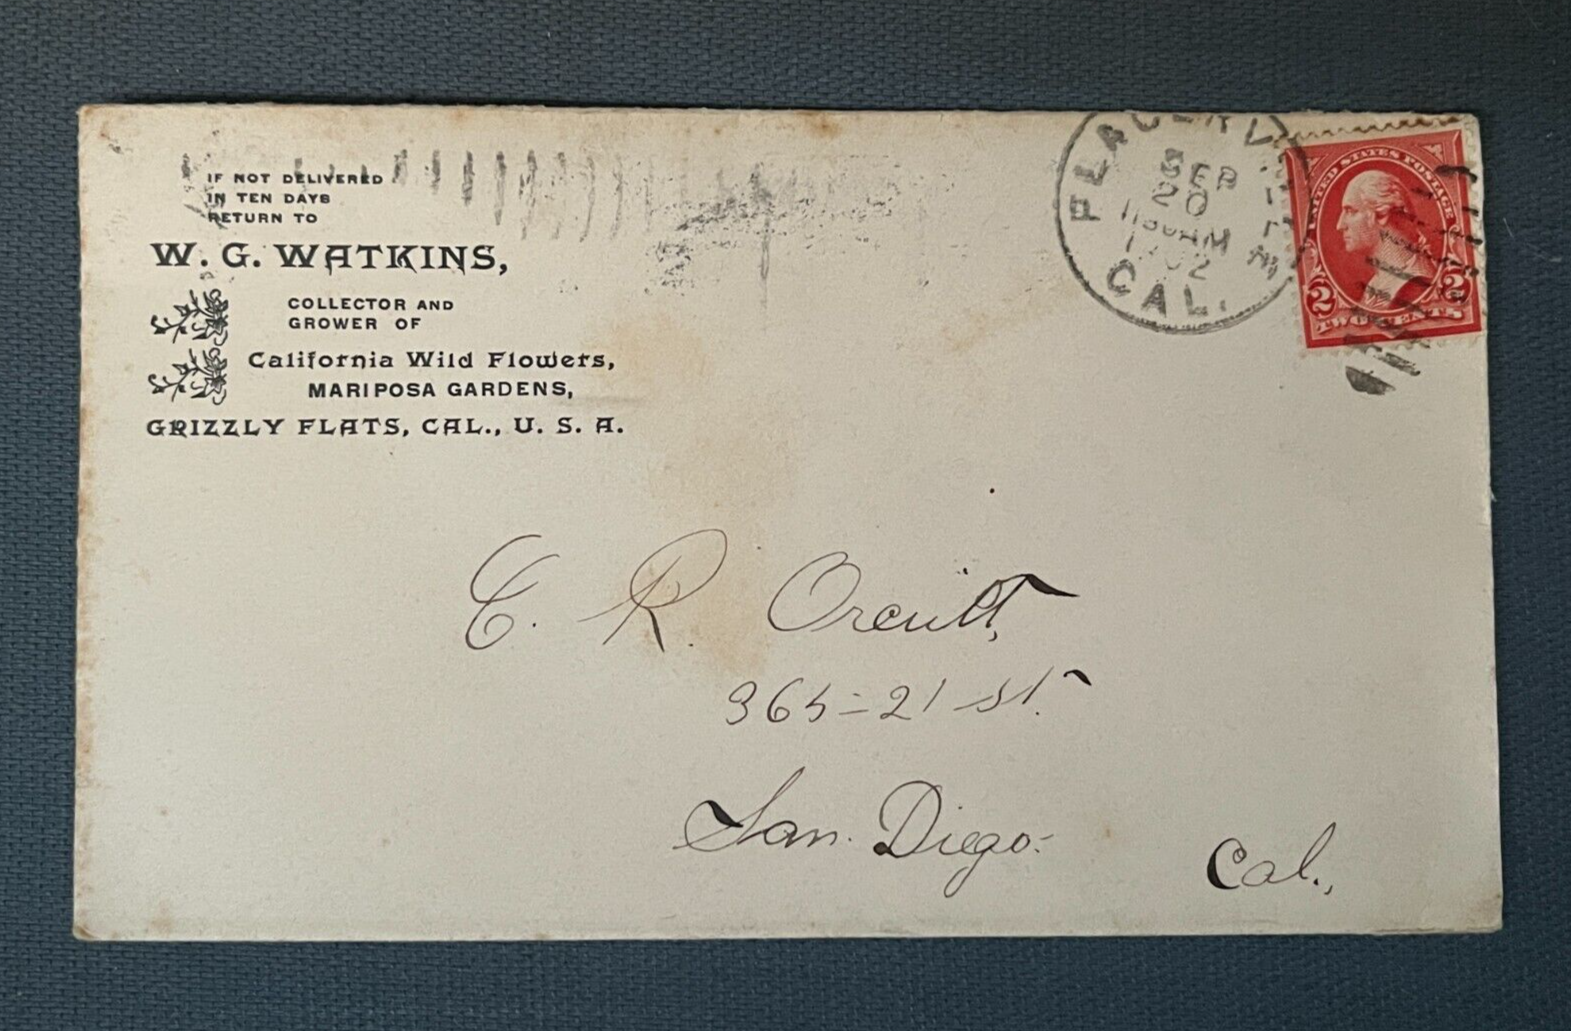 IF NOT DELIVERED
IN TEN DAYS
RETURN TO
W. G. WATKINS,
COLLECTOR AND
GROWER OF
California Wild Flowers,
MARIPOSA GARDENS,
GRIZZLY FLATS, CAL., U. S. A.
PLACERVILLE
SEP
20
1130AM
1902
CAL.
UNITED STATES POSTAGE
2 2
TWO CENTS
C. R. Orcutt,
365-21 st.
San Diego.
Cal.,